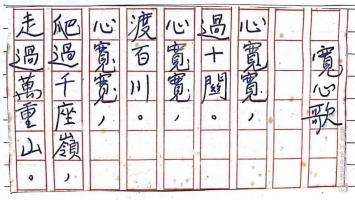 寬心歌
心寬寬，
過十關。
心寬寬，
渡百川。
心寬寬，
爬過千座嶺，
走過萬重山。